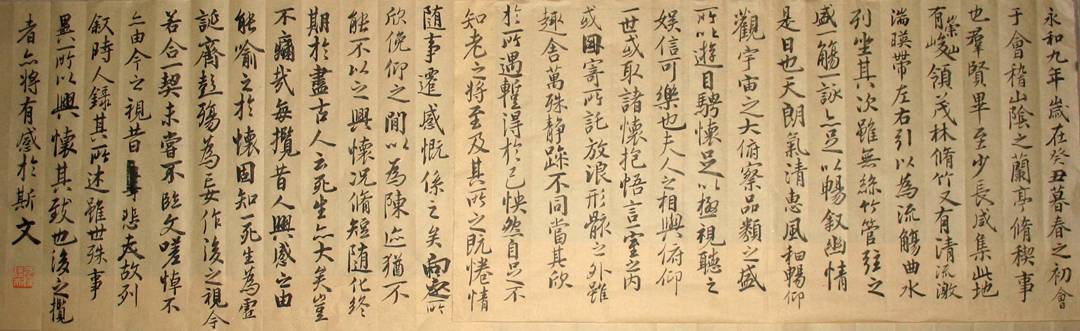 永和九年歲在癸丑暮春之初會
于會稽山陰之蘭亭脩稧事
也羣賢畢至少長咸集此地
有崇山峻領茂林脩竹又有清流激
湍暎帶左右引以為流觴曲水
列坐其次雖無絲竹管弦之
盛一觴一詠亦足以暢敘幽情
是日也天朗氣清惠風和暢仰
觀宇宙之大俯察品類之盛
所以遊目騁懷足以極視聽之
娛信可樂也夫人之相與俯仰
一世或取諸懷抱悟言一室之內
或因寄所託放浪形骸之外雖
趣舍萬殊靜躁不同當其欣
於所遇暫得於己怏然自足不
知老之將至及其所之既惓情
隨事遷感慨係之矣向之所
欣俛仰之間以為陳迹猶不
能不以之興懷況脩短隨化終
期於盡古人云死生亦大矣豈
不痛哉每攬昔人興感之由
能喻之於懷固知一死生為虛
誕齊彭殤為妄作後之視今
若合一契未嘗不臨文嗟悼不
亦由今之視昔悲夫故列
敘時人錄其所述雖世殊事
異所以興懷其致一也後之攬
者亦將有感於斯文